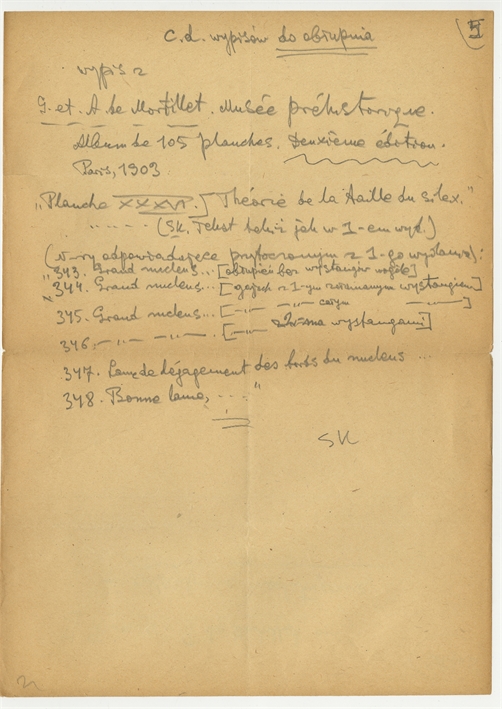 5
C.d. wypisów do obłupnia
wypis 2
G. et. A. de Mortillet. Musée préhistorique.
Album de 105 planches. Deuxième édition.
Paris, 1903
"Planche XXXVI. Théorie de la taille du silex."
(SK. Tekst taki jak w 1-em wyd.)
(N-ry odpowiadające przytoczonym z 1-go wydania):
"343. Grand nucleus... [obłupień bez wystających]
x 344. Grand nucleus... [z 1-ym wystającem]
345. Grand nucleus... [—"— —"— całym —"—]
346. —"— —"— [—"— wystającami]
347. Lame de dégagement des bords du nucleus ...
348. Bonne lame, ..."
SK
2